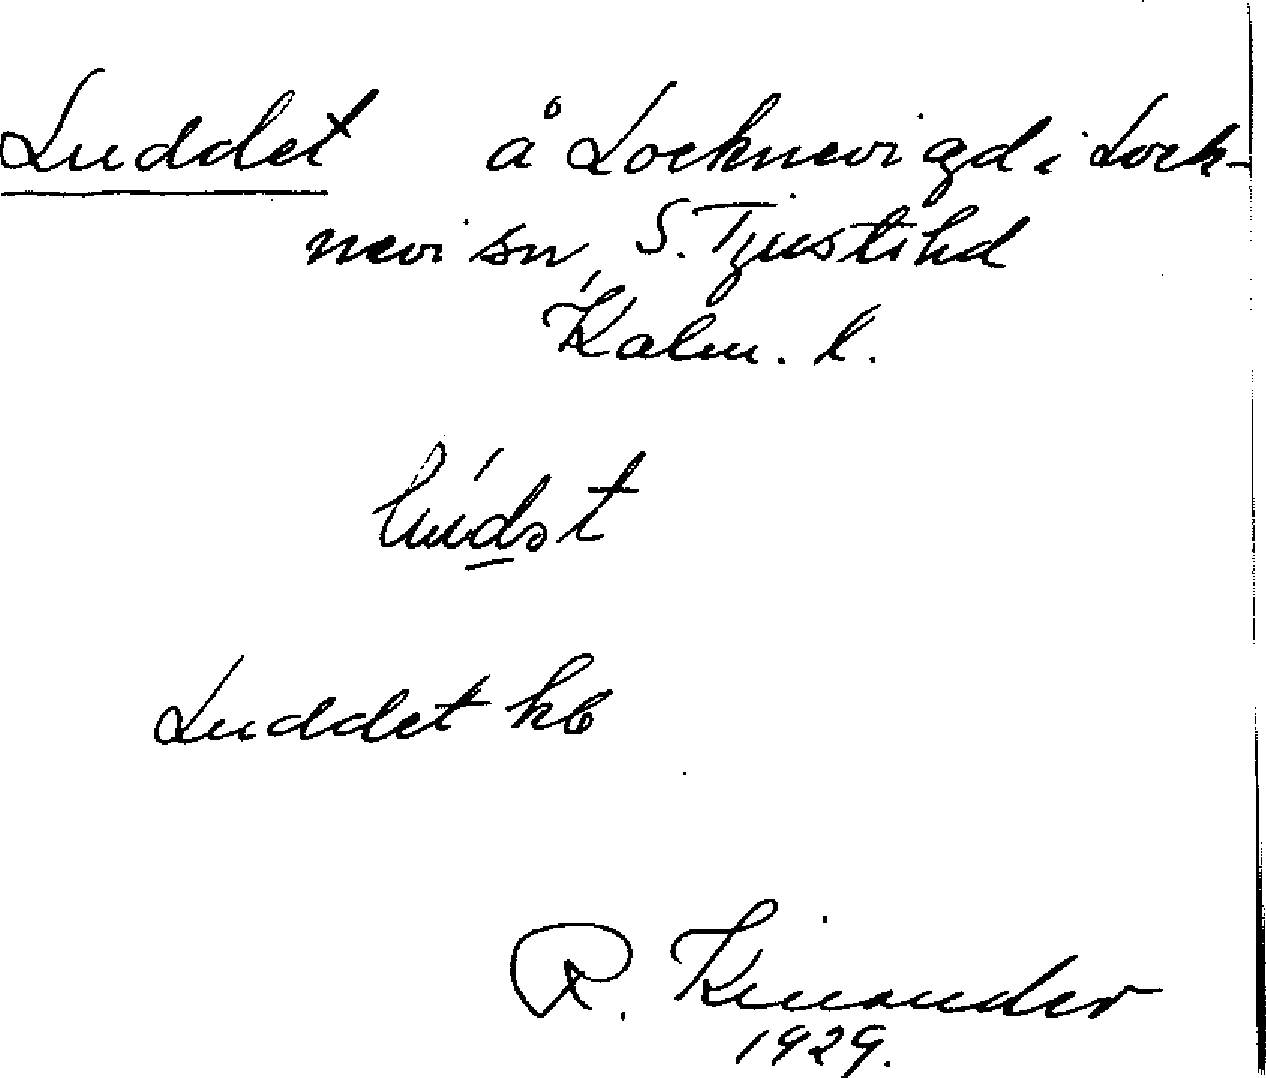 Luddet å Locknevi gd i Lock-
nevi sn, S. Tjust hd
Kalm. l.
lúdət
Luddet kb
R. Kinander
1929.